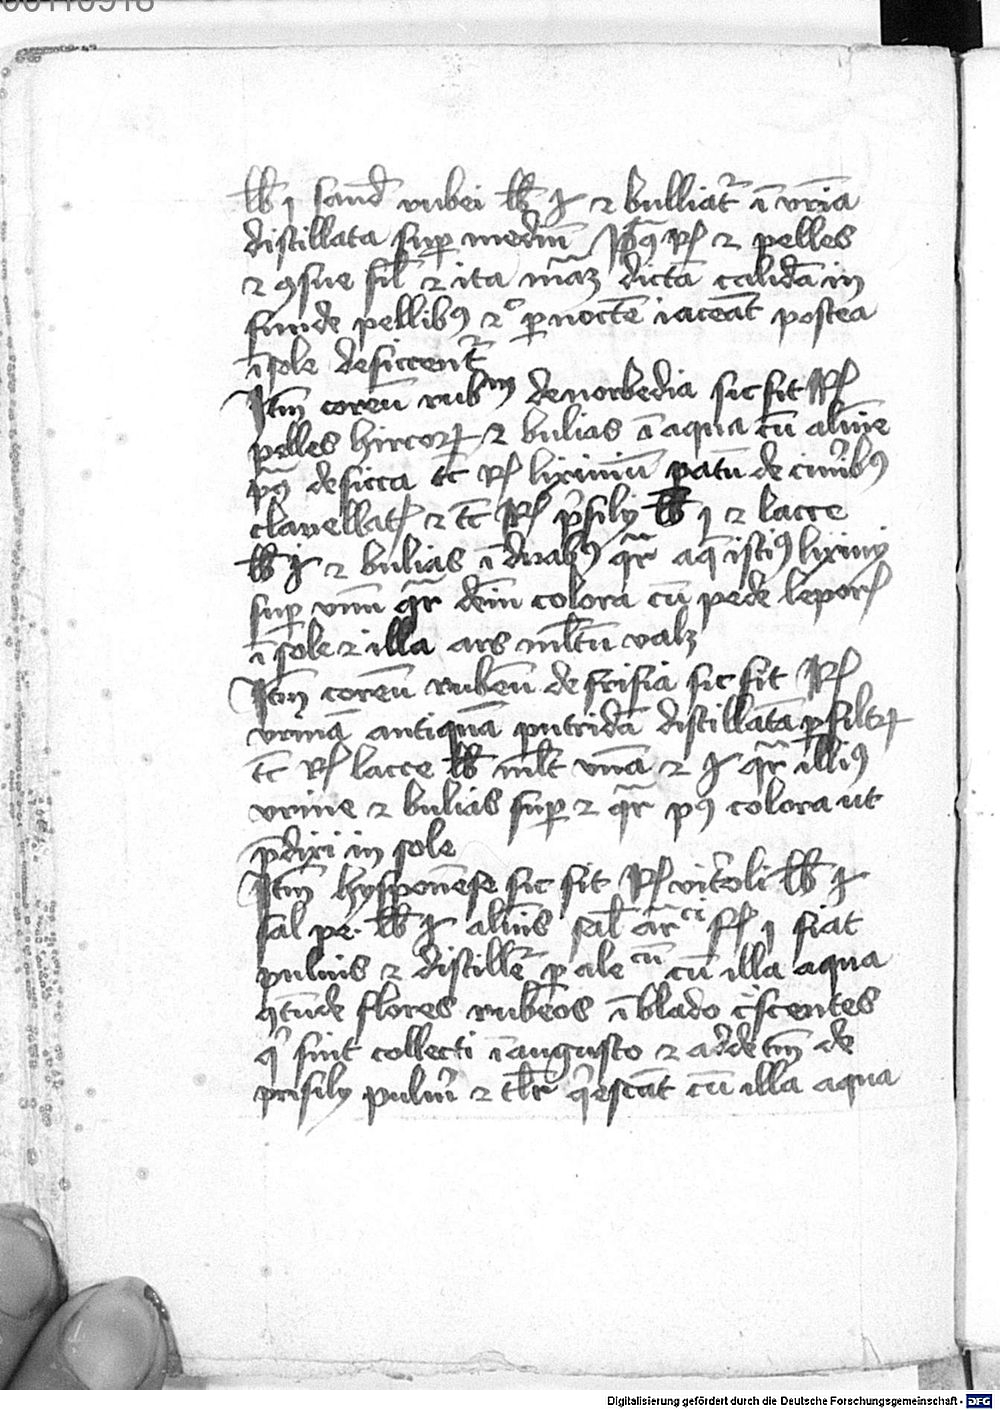 00110918
lb j sand rubei lb ʒ ⁊ bulliatr ī vrīa
distillata sup mediū Postq; Rx ⁊ pelles
⁊ ꝯsue sil ⁊ ita māz dictā calidā in
funde pellibꝰ ⁊c p noctē iaceāt postea
ī sole desiccentr
Itm coreū rubm de norbedia sic fit Rx
pelles hircoꝝ ⁊ bulias ī aqua cū alūīe
pꝰ desicca tc Rx lixiuiū patū de cinīibꝰ
clauellat ⁊ tc Rx p̄sily lb j ⁊ lacce
lb ⁊ bulias ī duabꝰ qr aq istiꝰ lixiuij
sup vnū qr dein colora cū pede lepor
ī sole ⁊ illa ars mltū valz
Itm coreū rubeū de frisia sic fit Rx
vrinā antiquā putridā distillatā p filtꝝ
tc Rx lacce lb mlt vnā ⁊ qr illiꝰ
vrine ⁊ bulias sup ⁊ qr pꝰ colora ut
p̄dixi in sole
Itm hysponēse sic fit Rx vitroli lb
sal pe. lb alūīs sal ar fiat
puluis ⁊ distiller p alecū cū illa aqua
ꝯtūde flores rubeos ī blado c̄scentes
q sint collecti ī augusto ⁊ adde tm de
prisily puluī ⁊ tlr q̄escāt cū illa aqua
Digitalisierung gefördert durch die Deutsche Forschungsgemeinschaft - DFG